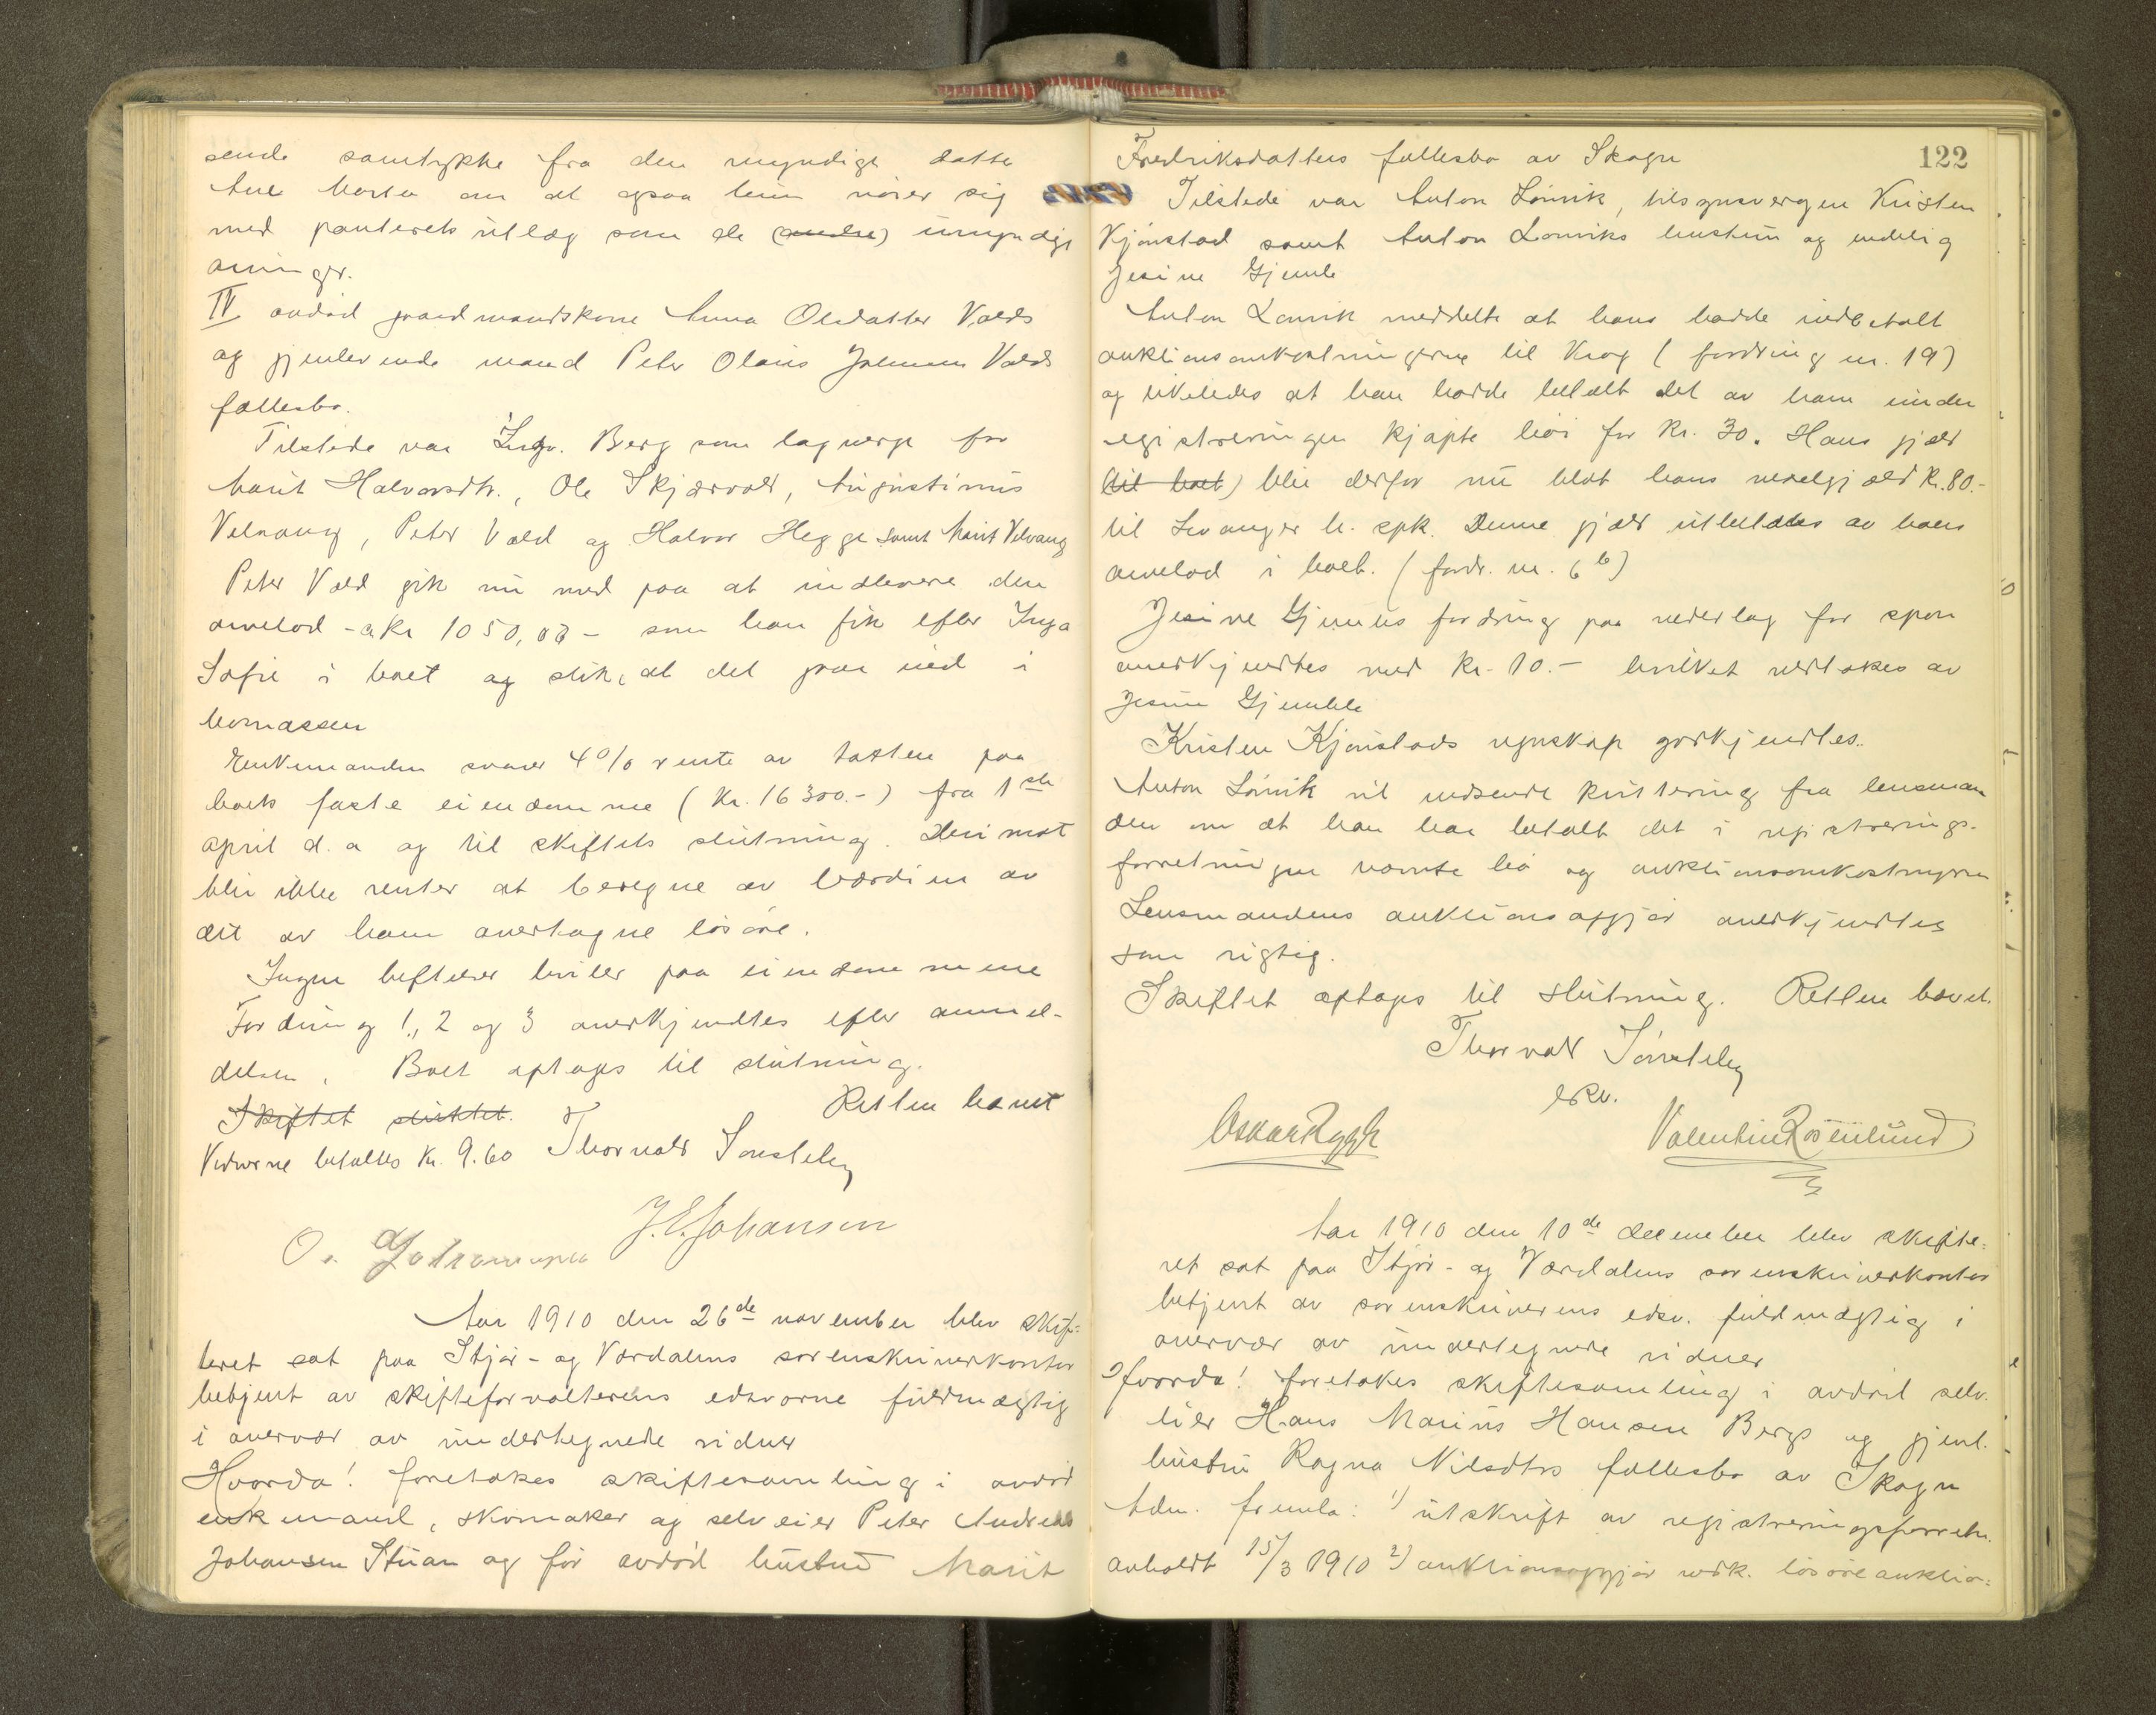 sende samtykke fra den myndige datte
Ane Marta om at ogsaa hun nöier sig
med panteretsutlæg som de (andre) umyndige
arvinger.
IV avdöd gaardmandskone Anna Olsdatter Valds
og gjenlevende mand Peter Olaus Johnsen Valds
fællesbo.
Tilstede var Ingv. Berg som lagverge for
Marit Halvorsdtr., Ole Skjærvold, Augustinus
Velvang, Peter Vald og Halvor Hegge samt Marit Velvang
Peter Vald gik nu med paa at indlevere den
arvelod - a kr 1050,03 - som han fik efter Inga
Sofie i boet og slik, at det gaar ind i
bomassen
Enkemanden svarer 4% rente av taksten paa
boets faste eiendomme (Kr. 16300.-) fra 1ste
april d. a og til skiftets slutning. Derimot
blir ikke renter at beregne av værdien av
det av ham overtagne lösöre.
Ingen heftelser hviler paa eiendommene
Fordring 1, 2 og 3 anerkjendtes efter anmel-
delsen. Boet optages til slutning.
Skiftet sluttet. Retten hævet
Vidnerne betaltes Kr. 9.60 Thorvald
J. E. Johansen
Aar 1910 den 26de november blev skif-
teret sat paa Stjör- og Værdalens sorenskriverkontor
betjent av skifteforvalterens edsvorne fuldmægtig
i overvær av undertegnede vidner
Hvorda! foretokes skiftesamling i avdöd
enkemand, skomaker og selveier Peter Andreas
Johansen Stuan og för avdöd hustru Marit
122
Fredriksdatters fællesbo av Skogn
Tilstede var Anton Lönvik, tilsynsvergen Kristen
Kjönstad samt Anton Lönviks hustru og endelig
Jesine Gjemble
Anton Lönvik meddelte at hans hadde indbetalt
auktionsomkostningerne til Krog (fordring nr. 19)
og likeledes at han hadde betalt det av ham under
registreringen kjöpte höi for Kr. 30. Hans gjæld
(til boet) blir derfor nu blot hans vekselgjæld Kr. 80.-
til Levanger h. spk. Denne gjæld utbetales av hans
arvelod i boet. (fordr. nr. 6b)
Jesine Gjembles fordring paa vederlag for spon
anerkjendtes med Kr. 10.- hvilket vedtokes av
Jesine Gjemble
Kristen Kjönstads regnskap godkjendtes.
Anton Lönvik vil indsende kvittering fra lensman
den om at han har betalt det i registrerings-
forretningen nævnte höi og auktionsomkostningerne
Lensmandens auktionsopgjör anerkjendtes
som rigtig.
Skiftet optages til slutning. Retten hævet.
Thorvald
esv.
Oskar Rygh Valentin Rosenlund
Aar 1910 den 10de december blev skifte-
ret sat paa Stjör- og Værdalens sorenskriverkontor
betjent av sorenskriverens edsv. fuldmægtig i
overvær av undertegnede vidner
Hvorda! foretokes skiftesamling i avdöd selv-
eier Hans Marius Hansen Bergs og gjenl.
hustru Ragna Nilsdtrs fællesbo av Skogn
Adm. fremla: 1) utskrift av registreringsforretn.
avholdt 15/3 1910 2) auktionsopgjör vedk. lösöreauktio-